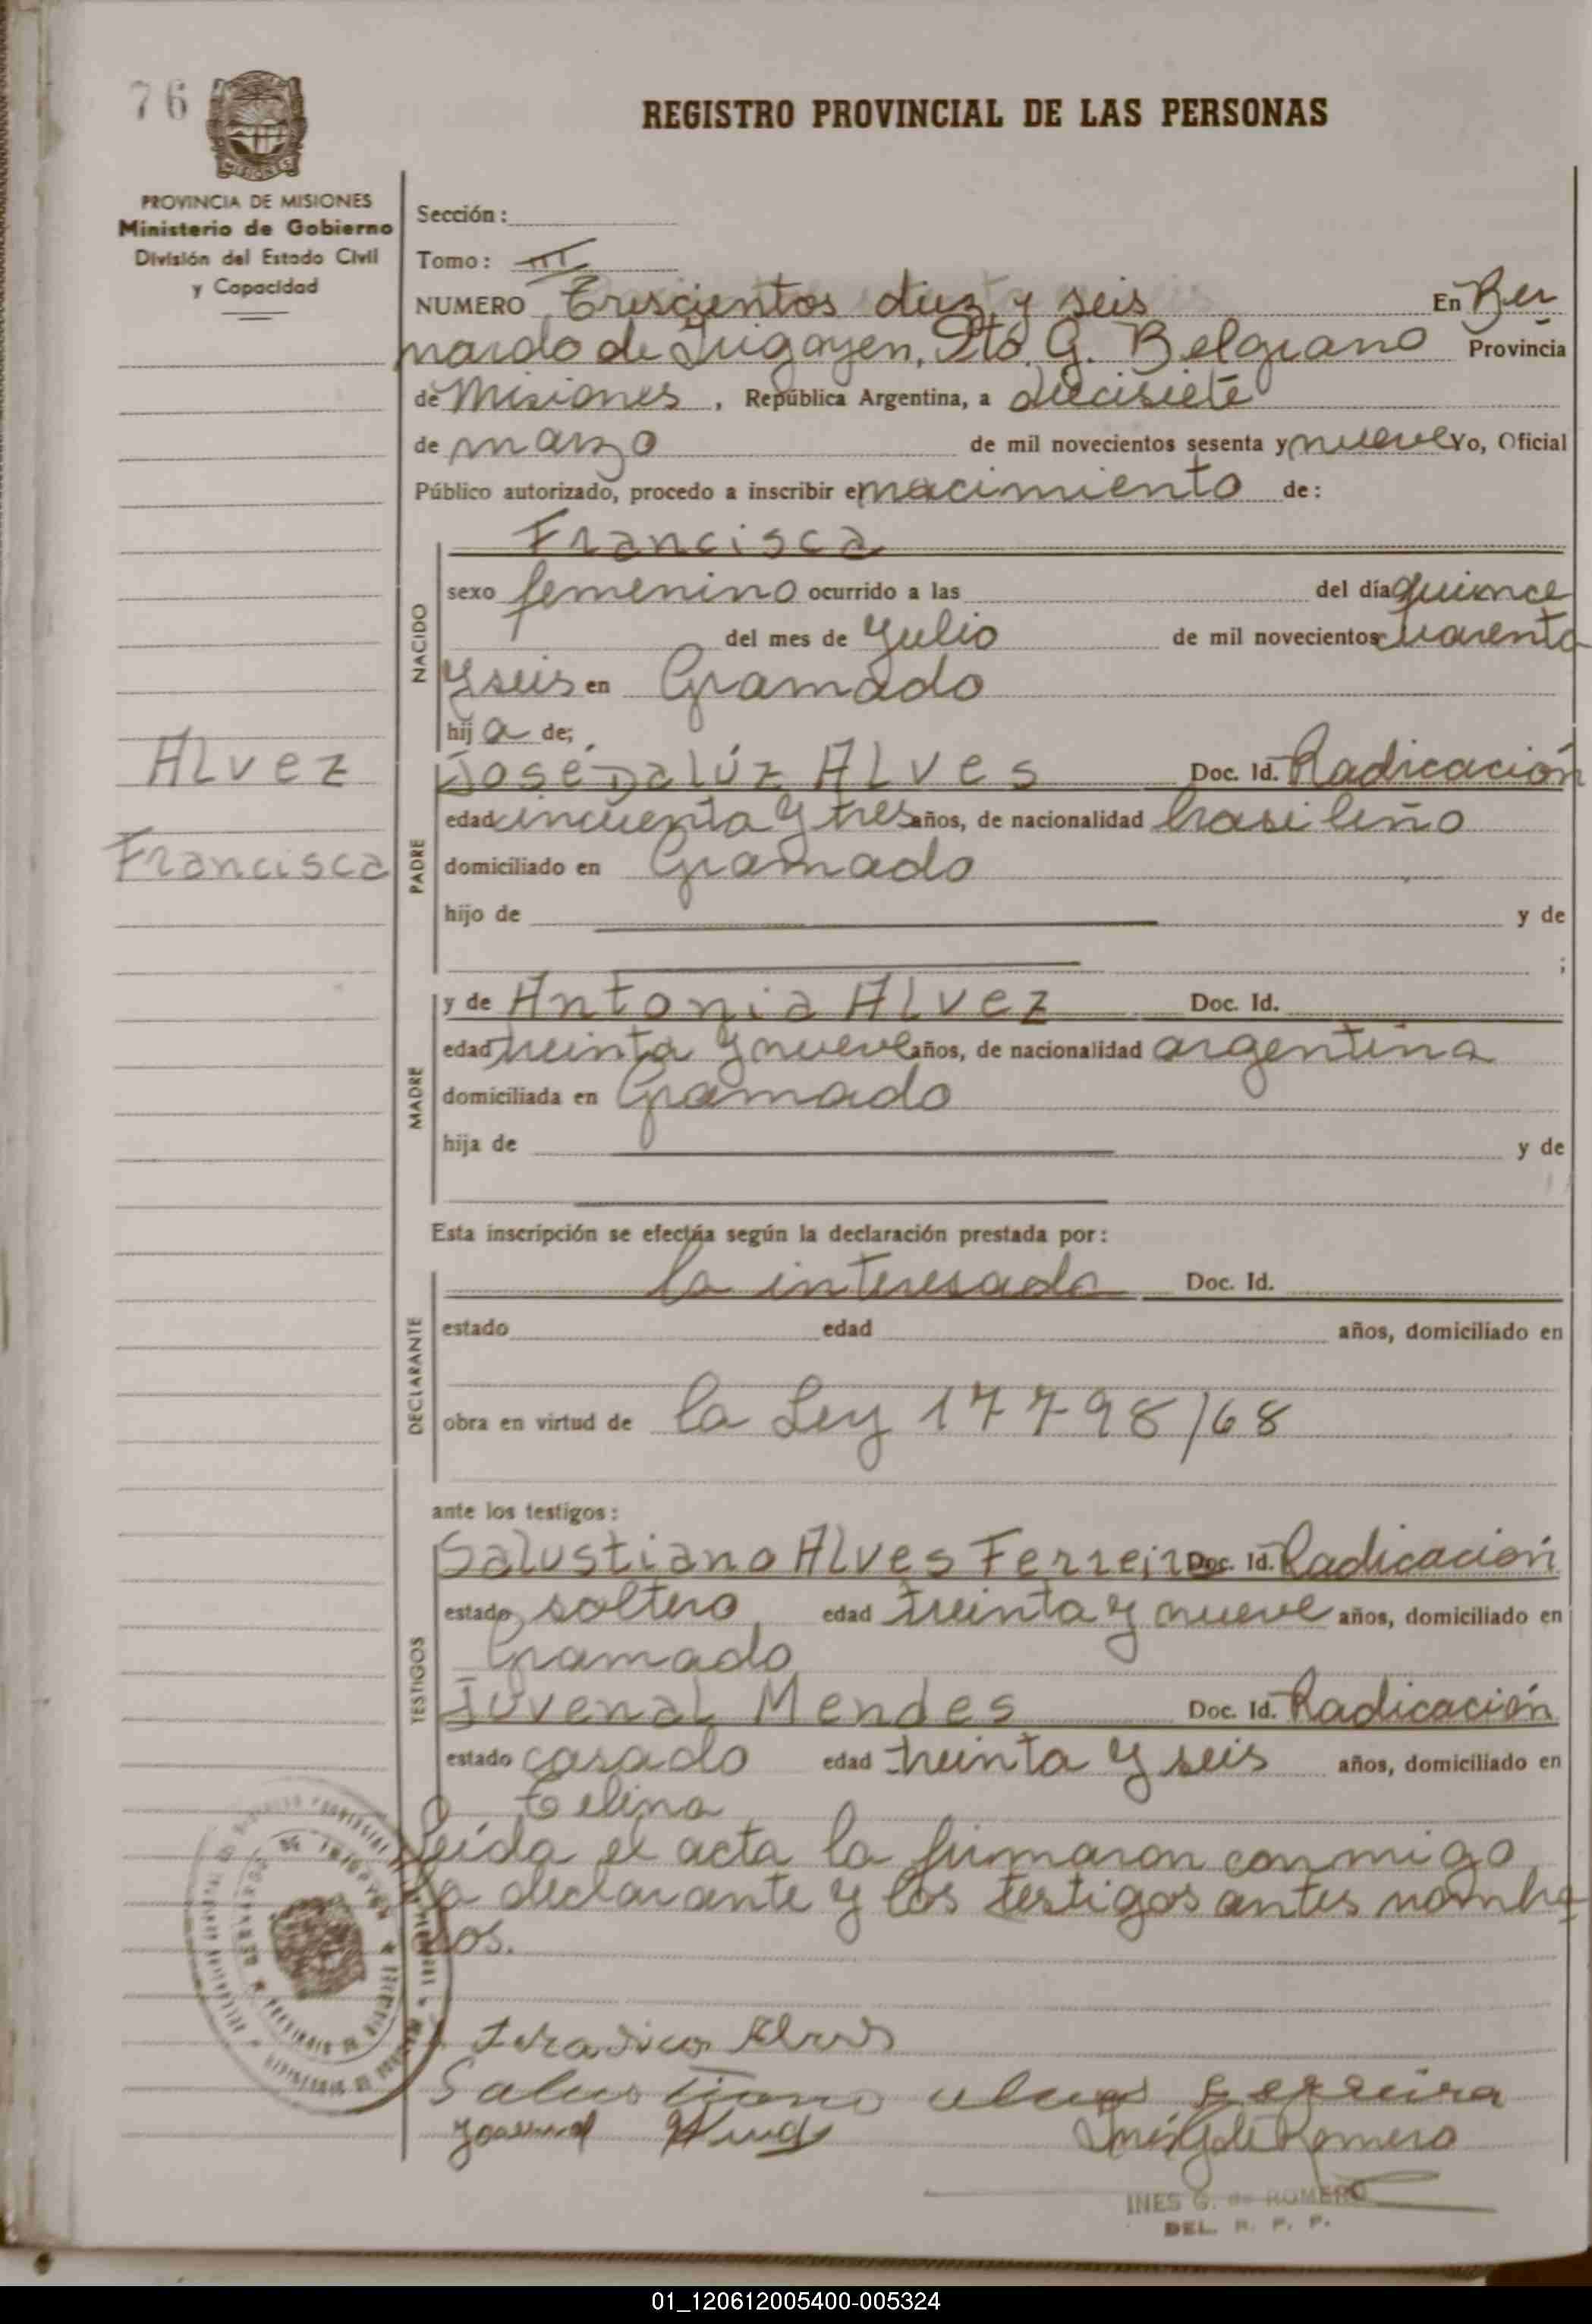 76
REGISTRO PROVINCIAL DE LAS PERSONAS
MISIONES
PROVINCIA DE MISIONES
Ministerio de Gobierno
División del Estado Civil
y Capacidad
Sección:
Tomo: III
NUMERO Trescientos diez y seis En Ber
nardo de Irigoyen, Dto. G. Belgrano Provincia
de Misiones, República Argentina, a diecisiete
de marzo de mil novecientos sesenta y nueve Yo, Oficial
Público autorizado, procedo a inscribir el nacimiento de:
NACIDO
Francisca
sexo femenino ocurrido a las del día quince
del mes de Julio de mil novecientos cuarenta
y seis en Gramado
hija de;
Alvez
Francisca
PADRE
José Dalúz Alves Doc. Id. Radicación
edad cincuenta y tres años, de nacionalidad brasileño
domiciliado en Gramado
hijo de y de
;
MADRE
y de Antonia Alvez Doc. Id.
edad treinta y nueve años, de nacionalidad argentina
domiciliada en Gramado
hija de y de
Esta inscripción se efectúa según la declaración prestada por:
DECLARANTE
la interesada Doc. Id.
estado edad años, domiciliado en
obra en virtud de la Ley 17798/68
ante los testigos:
TESTIGOS
Salustiano Alves Ferreira Doc. Id. Radicación
estado soltero edad treinta y nueve años, domiciliado en
Gramado
Juvenal Mendes Doc. Id. Radicación
estado casado edad treinta y seis años, domiciliado en
Celina
Leída el acta la firmaron conmigo
la declarante y los testigos antes nombra
dos.
Salustiano Alves Ferreira
Inés G de Romero
INES G. de ROMERO
DEL. R. P. P.
01_120612005400-005324